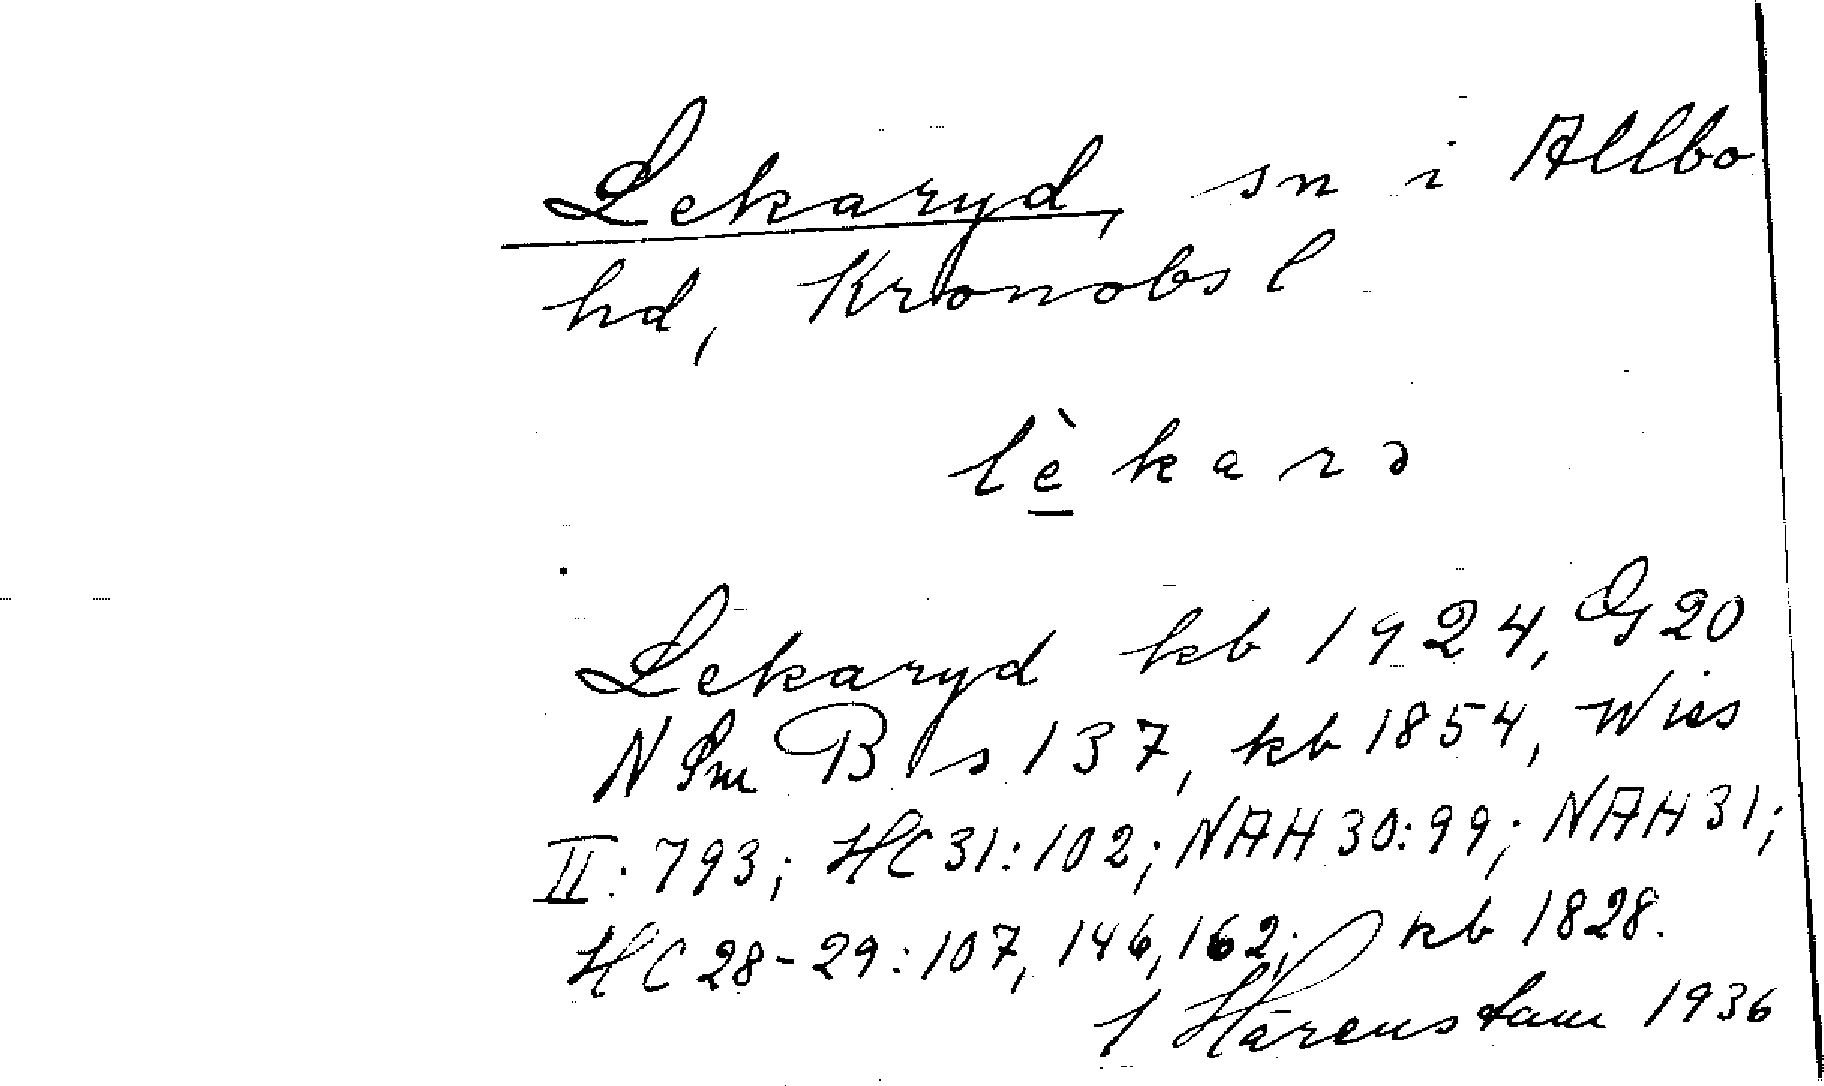 Lekaryd, sn i Allbo
hd, Kronobs l
lèkarə
Lekaryd kb 1924, G20
N Sm B s 137, kb 1854, Wies
II: 793; HC 31:102; NAH 30:99; NAH 31;
HC 28-29:107, 146, 162; kb 1828.
Härenstam 1936